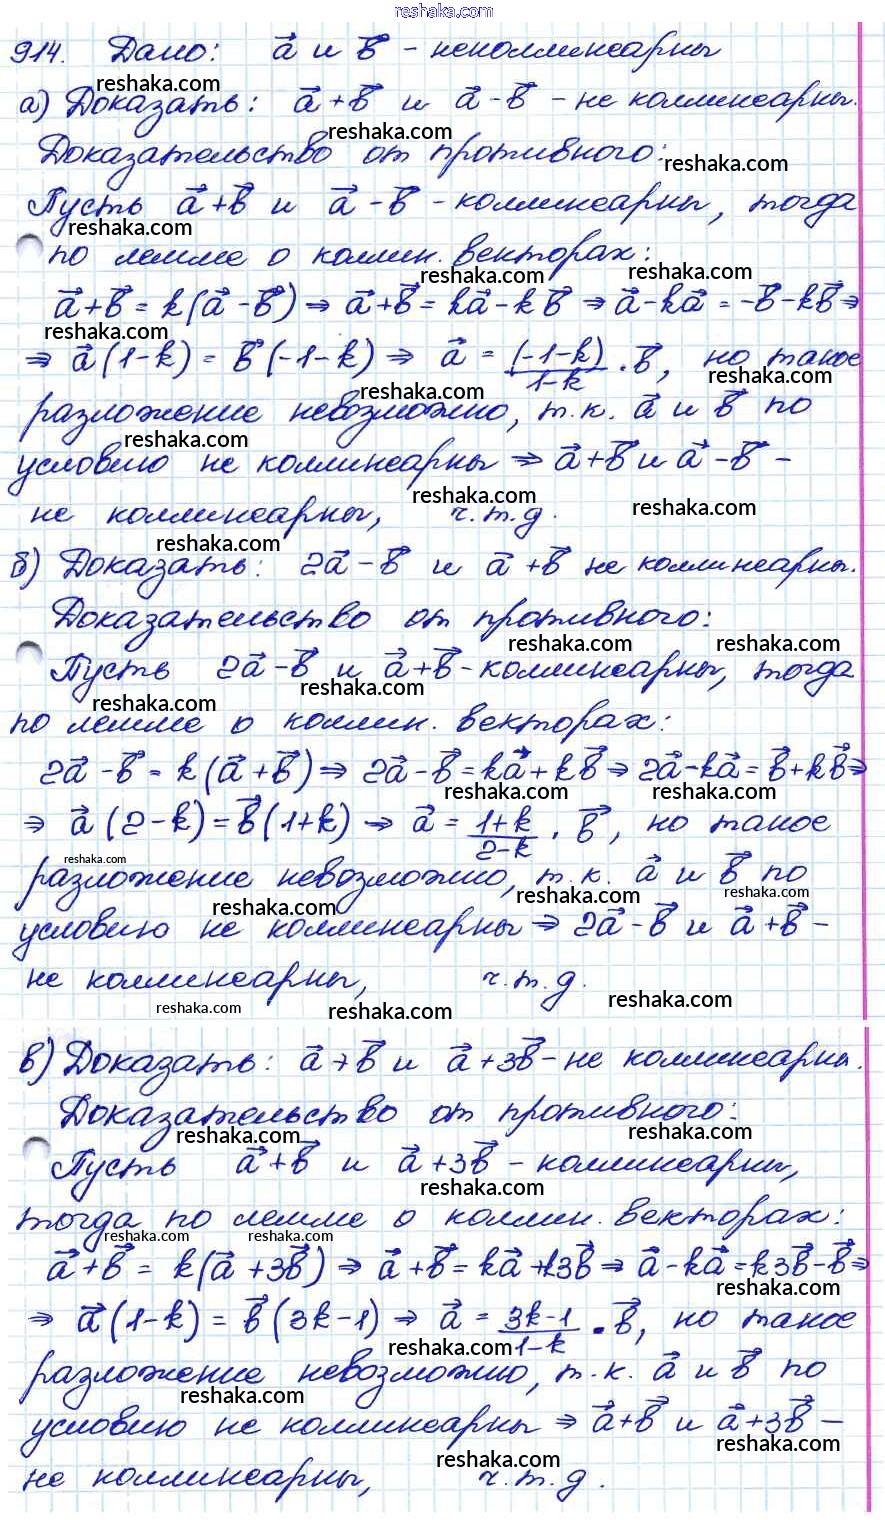 reshaka.com
914. Дано: a⃗ и b⃗ - неколлинеарны
reshaka.com
а) Доказать: a⃗+b⃗ и a⃗-b⃗ - не коллинеарны.
reshaka.com
Доказательство от противного:
reshaka.com
Пусть a⃗+b⃗ и a⃗-b⃗ - коллинеарны, тогда
reshaka.com
по лемме о коллин. векторах:
reshaka.com reshaka.com
a⃗+b⃗ = k(a⃗-b⃗) ⇒ a⃗+b⃗ = ka⃗-kb⃗ ⇒ a⃗-ka⃗ = -b⃗-kb⃗ ⇒
reshaka.com
⇒ a⃗(1-k) = b⃗(-1-k) ⇒ a⃗ = (-1-k)/(1-k) · b⃗, но такое
reshaka.com reshaka.com
разложение невозможно, т.к. a⃗ и b⃗ по
reshaka.com
условию не коллинеарны ⇒ a⃗+b⃗ и a⃗-b⃗ -
reshaka.com reshaka.com
не коллинеарны, ч.т.д.
reshaka.com
б) Доказать: 2a⃗-b⃗ и a⃗+b⃗ не коллинеарны.
Доказательство от противного:
reshaka.com reshaka.com
Пусть 2a⃗-b⃗ и a⃗+b⃗ - коллинеарны, тогда
reshaka.com reshaka.com
по лемме о коллин. векторах:
2a⃗-b⃗ = k(a⃗+b⃗) ⇒ 2a⃗-b⃗ = ka⃗+kb⃗ ⇒ 2a⃗-ka⃗ = b⃗+kb⃗ ⇒
reshaka.com reshaka.com
⇒ a⃗(2-k) = b⃗(1+k) ⇒ a⃗ = (1+k)/(2-k) · b⃗, но такое
reshaka.com
разложение невозможно, т.к. a⃗ и b⃗ по
reshaka.com reshaka.com reshaka.com
условию не коллинеарны ⇒ 2a⃗-b⃗ и a⃗+b⃗ -
не коллинеарны, ч.т.д.
reshaka.com reshaka.com reshaka.com
в) Доказать: a⃗+b⃗ и a⃗+3b⃗ - не коллинеарны.
Доказательство от противного:
reshaka.com reshaka.com
Пусть a⃗+b⃗ и a⃗+3b⃗ - коллинеарны,
reshaka.com
тогда по лемме о коллин. векторах:
reshaka.com reshaka.com
a⃗+b⃗ = k(a⃗+3b⃗) ⇒ a⃗+b⃗ = ka⃗+k3b⃗ ⇒ a⃗-ka⃗ = k3b⃗-b⃗ ⇒
reshaka.com
⇒ a⃗(1-k) = b⃗(3k-1) ⇒ a⃗ = (3k-1)/(1-k) · b⃗, но такое
reshaka.com
разложение невозможно, т.к. a⃗ и b⃗ по
reshaka.com
условию не коллинеарны ⇒ a⃗+b⃗ и a⃗+3b⃗ -
reshaka.com reshaka.com
не коллинеарны, ч.т.д.